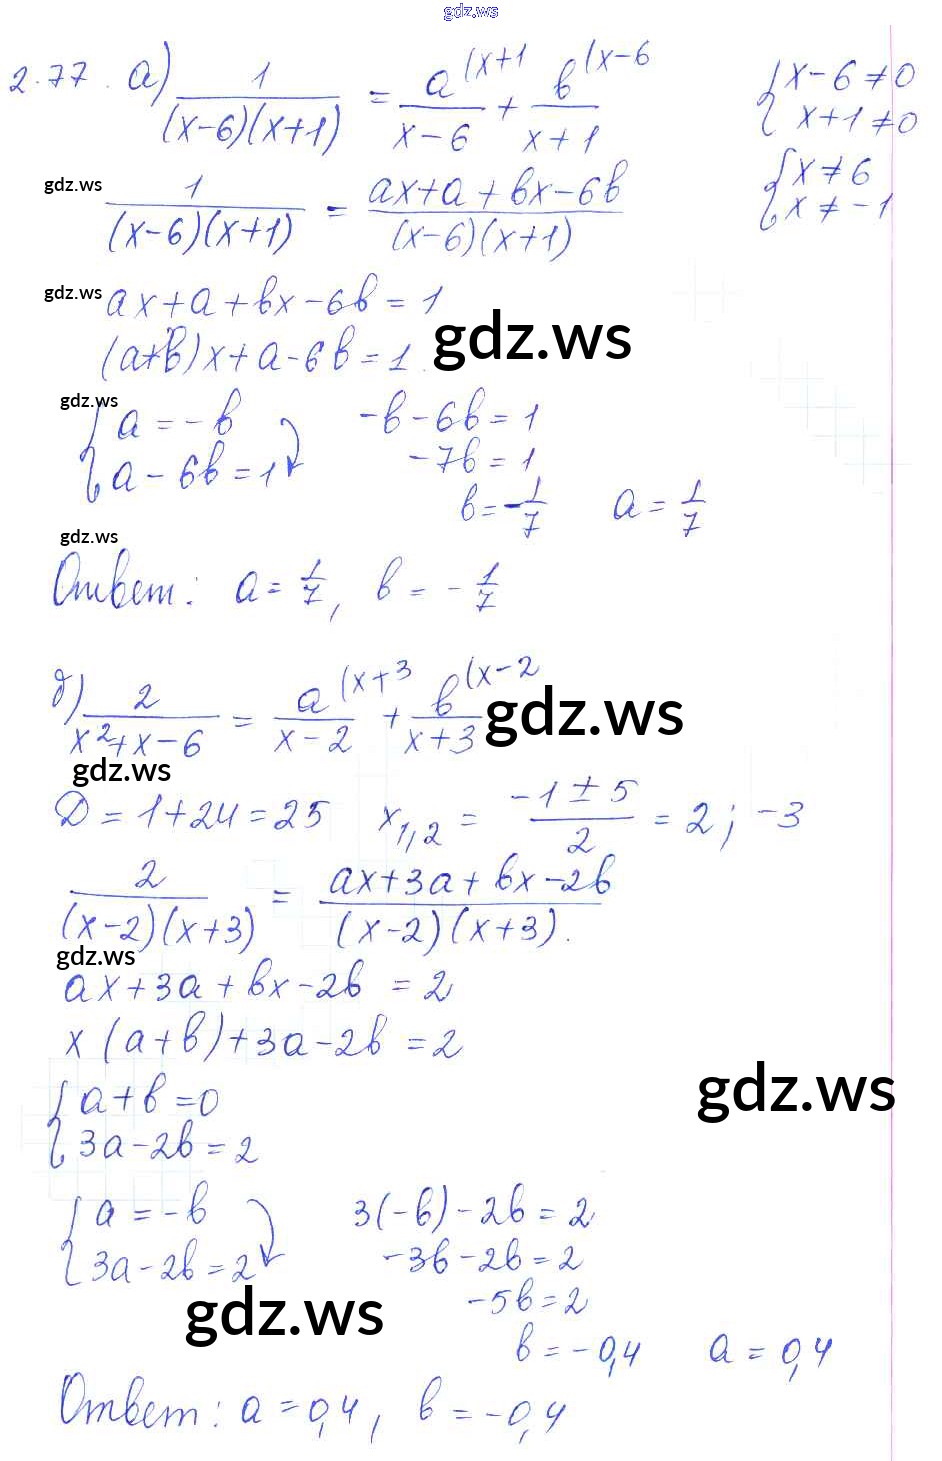 gdz.ws
2.77. а) 1/((x-6)(x+1)) = a^(x+1/(x-6) + b^(x-6/(x+1) { x-6≠0
x+1≠0
gdz.ws 1/((x-6)(x+1)) = (ax+a+bx-6b)/((x-6)(x+1)) { x≠6
x≠-1
gdz.ws ax+a+bx-6b=1
(a+b)x+a-6b=1. gdz.ws
gdz.ws
{ a=-b -b-6b=1
a-6b=1 -7b=1
b=-1/7 a=1/7
gdz.ws
Ответ: a=1/7, b=-1/7
б) 2/(x²+x-6) = a^(x+3/(x-2) + b^(x-2/(x+3) gdz.ws
gdz.ws
D=1+24=25 x1,2 = (-1±5)/2 = 2; -3
2/((x-2)(x+3)) = (ax+3a+bx-2b)/((x-2)(x+3)).
gdz.ws
ax+3a+bx-2b=2
x(a+b)+3a-2b=2
gdz.ws
{ a+b=0
3a-2b=2
{ a=-b 3(-b)-2b=2
3a-2b=2 -3b-2b=2
gdz.ws -5b=2
b=-0,4 a=0,4
Ответ: a=0,4, b=-0,4